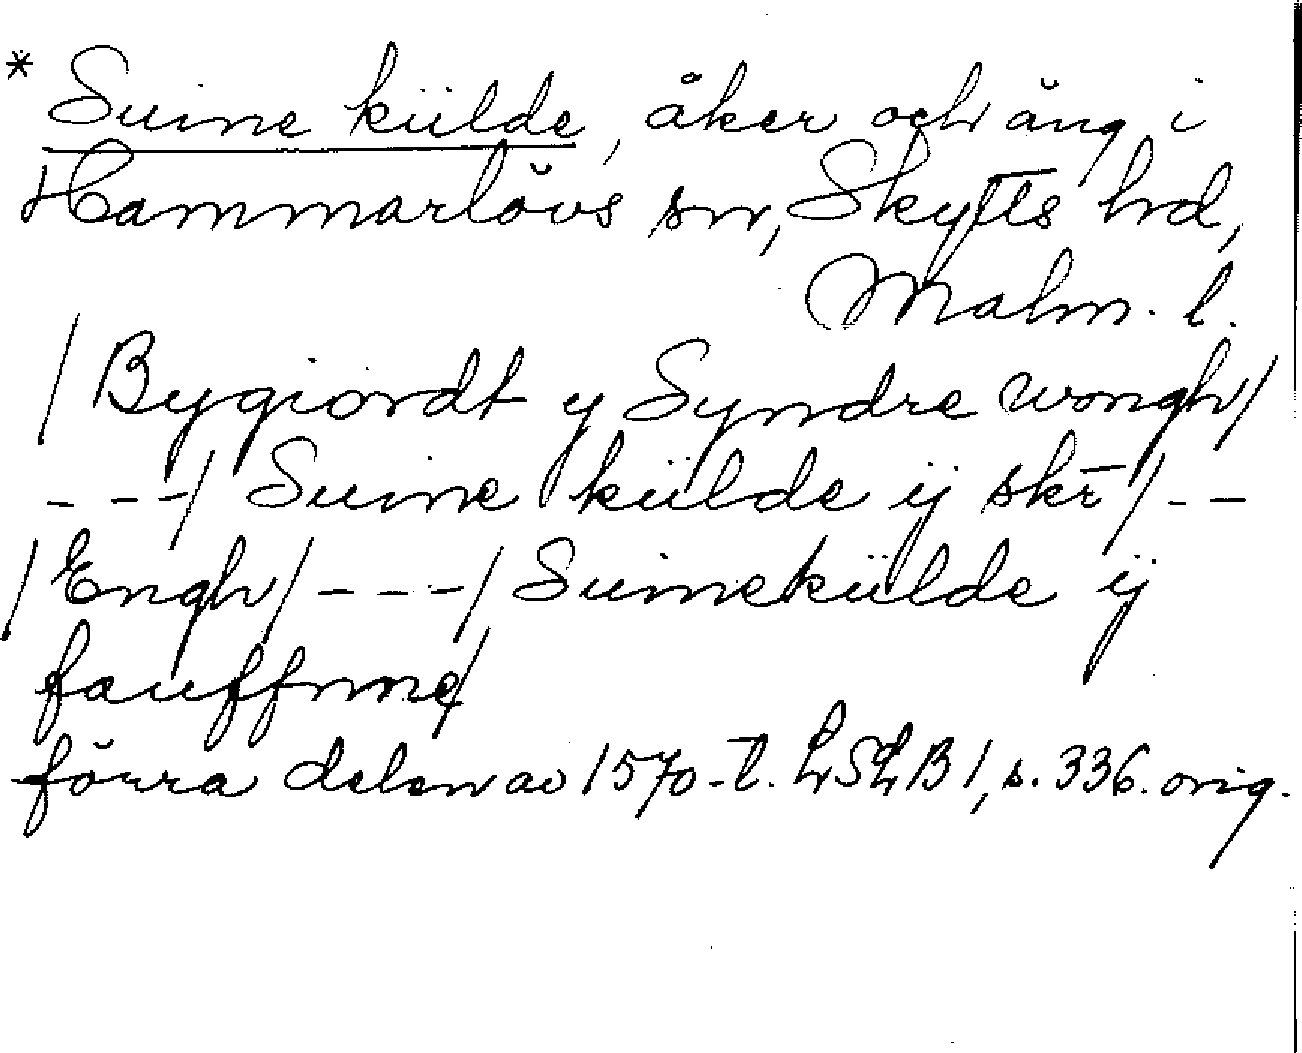 * Suine külde, åker och äng i
Hammarlövs sn, Skytts hd,
Malm. l.
/Bygiordt y Syndre wongh/
---/Suine külde ij skr̄/--
/Engh/---/Suinekülde ij
fauffnne/
förra delen av 1570-t. LSLB1, s. 336. orig.